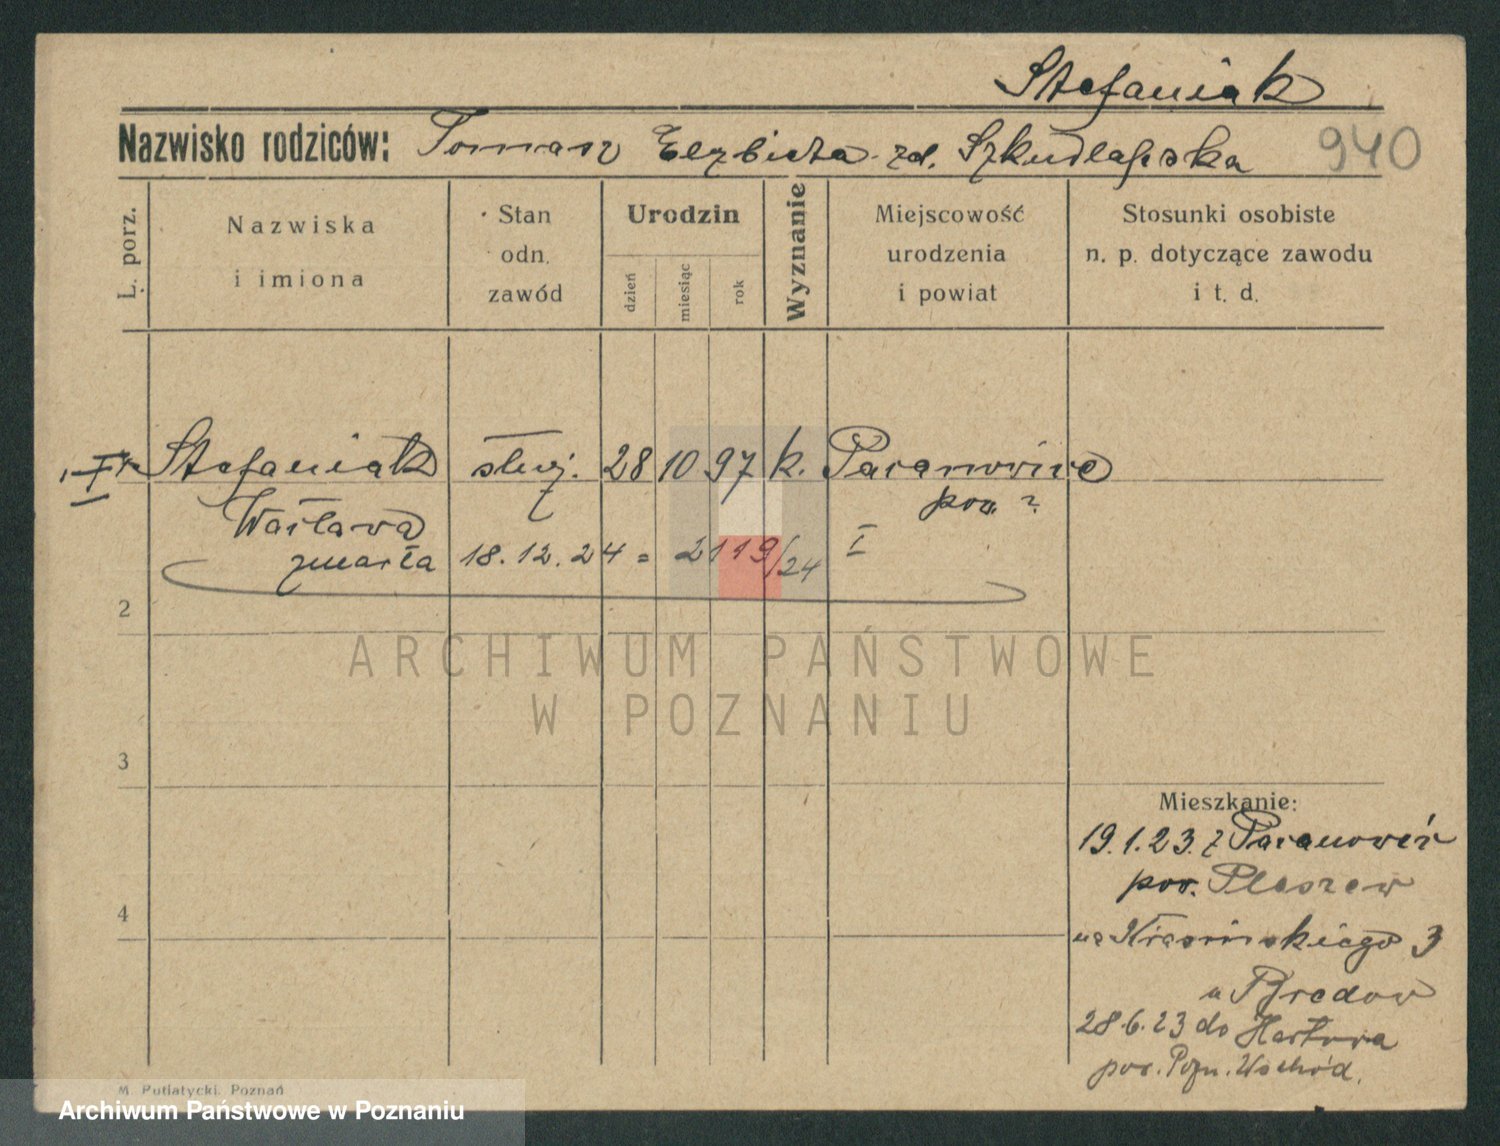 Stefaniak
Nazwisko rodziców: Tomasz Elżbieta zd. Szkudlarska 940
L. porz.
Nazwiska i imiona
Stan odn. zawód
Urodzin
dzień
miesiąc
rok
Wyznanie
Miejscowość urodzenia i powiat
Stosunki osobiste n. p. dotyczące zawodu i t. d.
Stefaniak służ. 28 10 97 k.
Wacława pow. ?
zmarła 18.12.24 = 2119/24 I
2
ARCHIWUM PAŃSTWOWE
W POZNANIU
3
Mieszkanie:
19.1.23. z
pow. Pleszew
4
na Krasińskiego 3
u Bredow
28.6.23 do
pow. Pozn. Wschód.
M. Putiatycki, Poznań
Archiwum Państwowe w Poznaniu